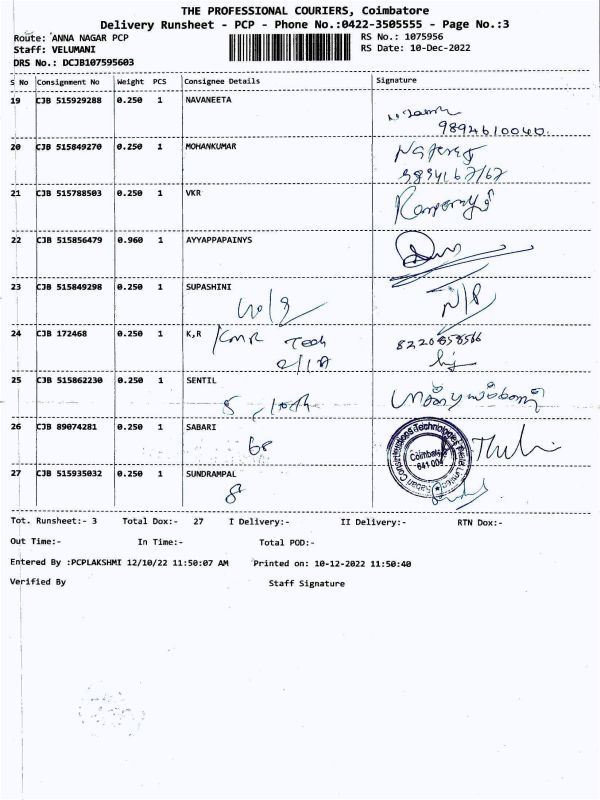 THE PROFESSIONAL COURIERS, Coimbatore
Delivery Runsheet - PCP - Phone No.:0422-3505555 - Page No.:3
Route: ANNA NAGAR PCP RS No.: 1075956
Staff: VELUMANI RS Date: 10-Dec-2022
DRS No.: DCJB107595603
S No Consignment No Weight PCS Consignee Details Signature
19 CJB 515929288 0.250 1 NAVANEETA
9894610040.
20 CJB 515849270 0.250 1 MOHANKUMAR
21 CJB 515788503 0.250 1 VKR
22 CJB 515856479 0.960 1 AYYAPPAPAINYS
23 CJB 515849298 0.250 1 SUPASHINI
N/P
24 CJB 172468 0.250 1 K,R
8220858566
Tech
25 CJB 515862230 0.250 1 SENTIL
26 CJB 89074281 0.250 1 SABARI
68
Coimbatore
641 004
27 CJB 515935032 0.250 1 SUNDRAMPAL
8
Tot. Runsheet:- 3 Total Dox:- 27 I Delivery:- II Delivery:- RTN Dox:-
Out Time:- In Time:- Total POD:-
Entered By :PCPLAKSHMI 12/10/22 11:50:07 AM Printed on: 10-12-2022 11:50:40
Verified By Staff Signature